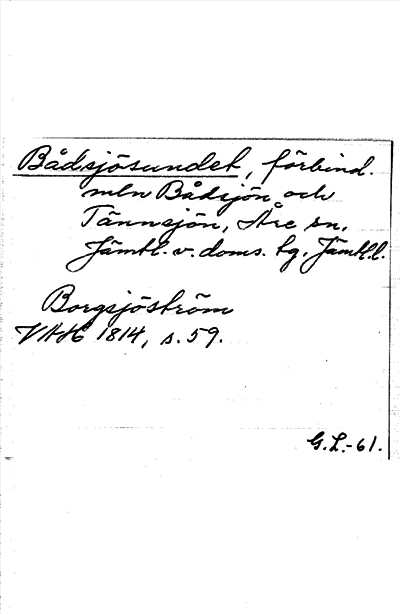 Bådsjösundet, förbind.
mln Bådsjön och
Tännsjön, Åre sn.
Jämtl. v. doms. tg. Jämtl. l.
Borgsjöström
VAH 1814, s. 59.
G. L. -61.